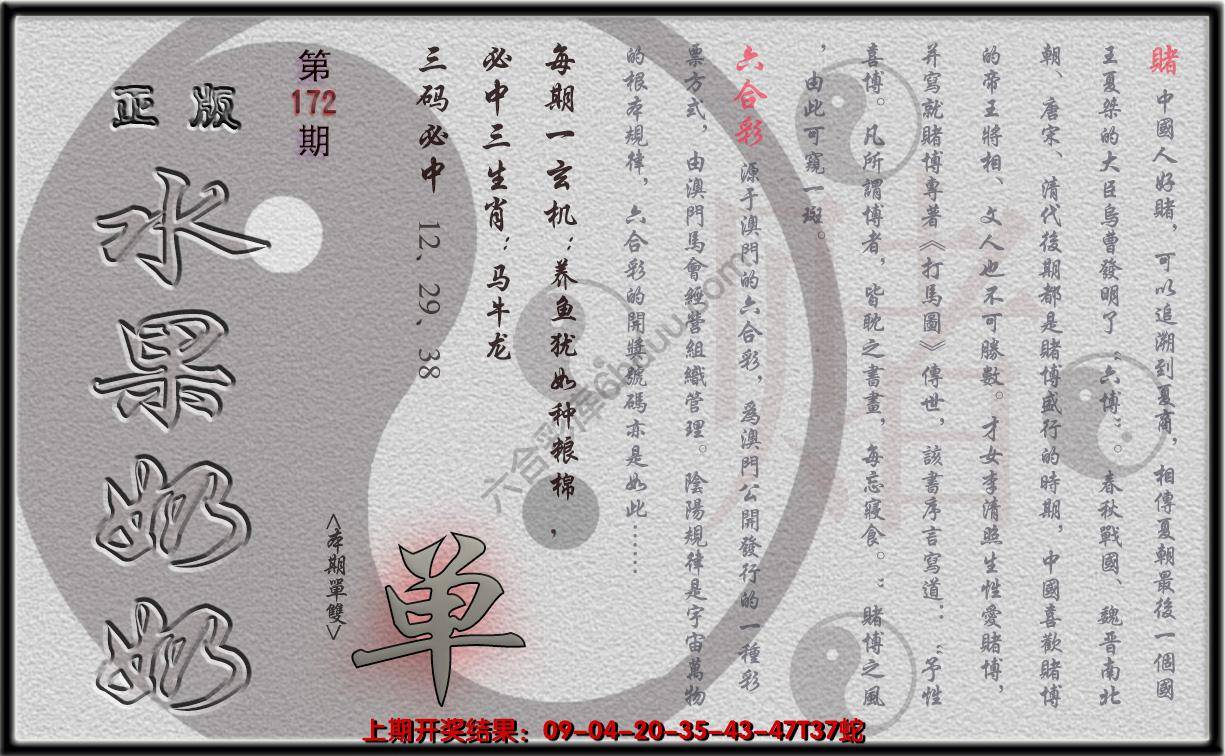 賭 中國人好賭，可以追溯到夏商，相傳夏朝最後一個國
王夏桀的大臣烏曹發明了“六博”。春秋戰國、魏晋南北
朝、唐宋、清代後期都是賭博盛行的時期，中國喜歡賭博
的帝王將相、文人也不可勝數。才女李清照生性愛賭博，
并寫就賭博專著《打馬圖》傳世，該書序言寫道：“予性
喜博。凡所謂博者，皆耽之書畫，每忘寢食。”賭博之風
，由此可窺一斑。
六合彩 源于澳門的六合彩，爲澳門公開發行的一種彩
票方式，由澳門馬會經營組織管理。陰陽規律是宇宙萬物
的根本規律，六合彩的開獎號碼亦是如此……
每期一玄机：养鱼犹如种粮棉，
必中三生肖：马牛龙
三码必中 12、29、38
第
172
期
正版
水果奶奶
<本期單雙>
单
六合彩库6hduu.com
上期开奖结果：09-04-20-35-43-47T37蛇